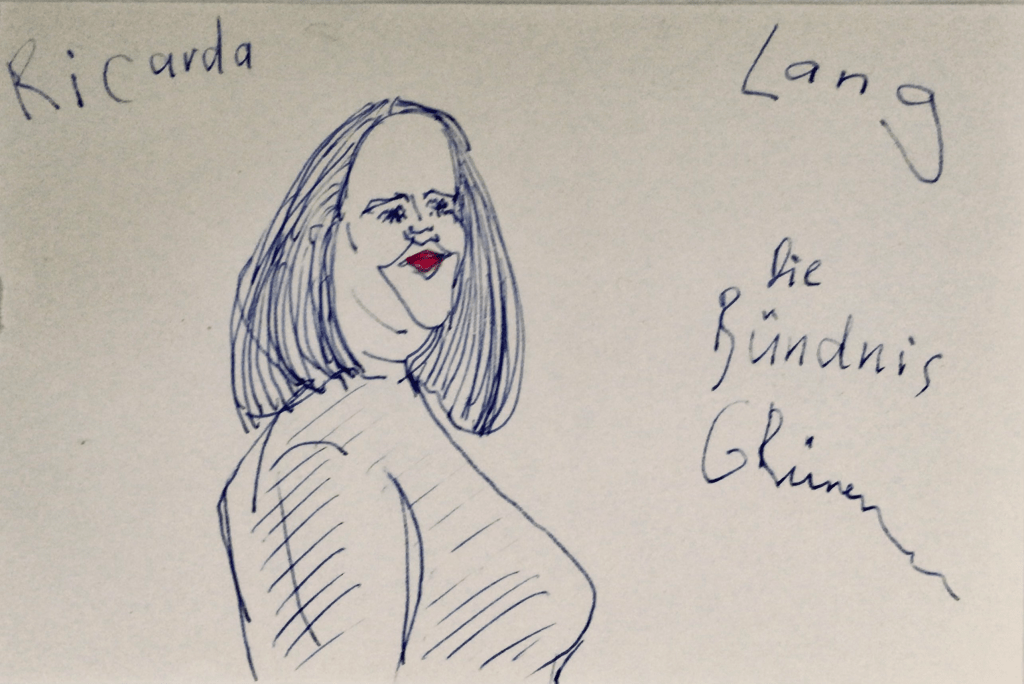 Ricarda Lang
Die
Bündnis
GRünen